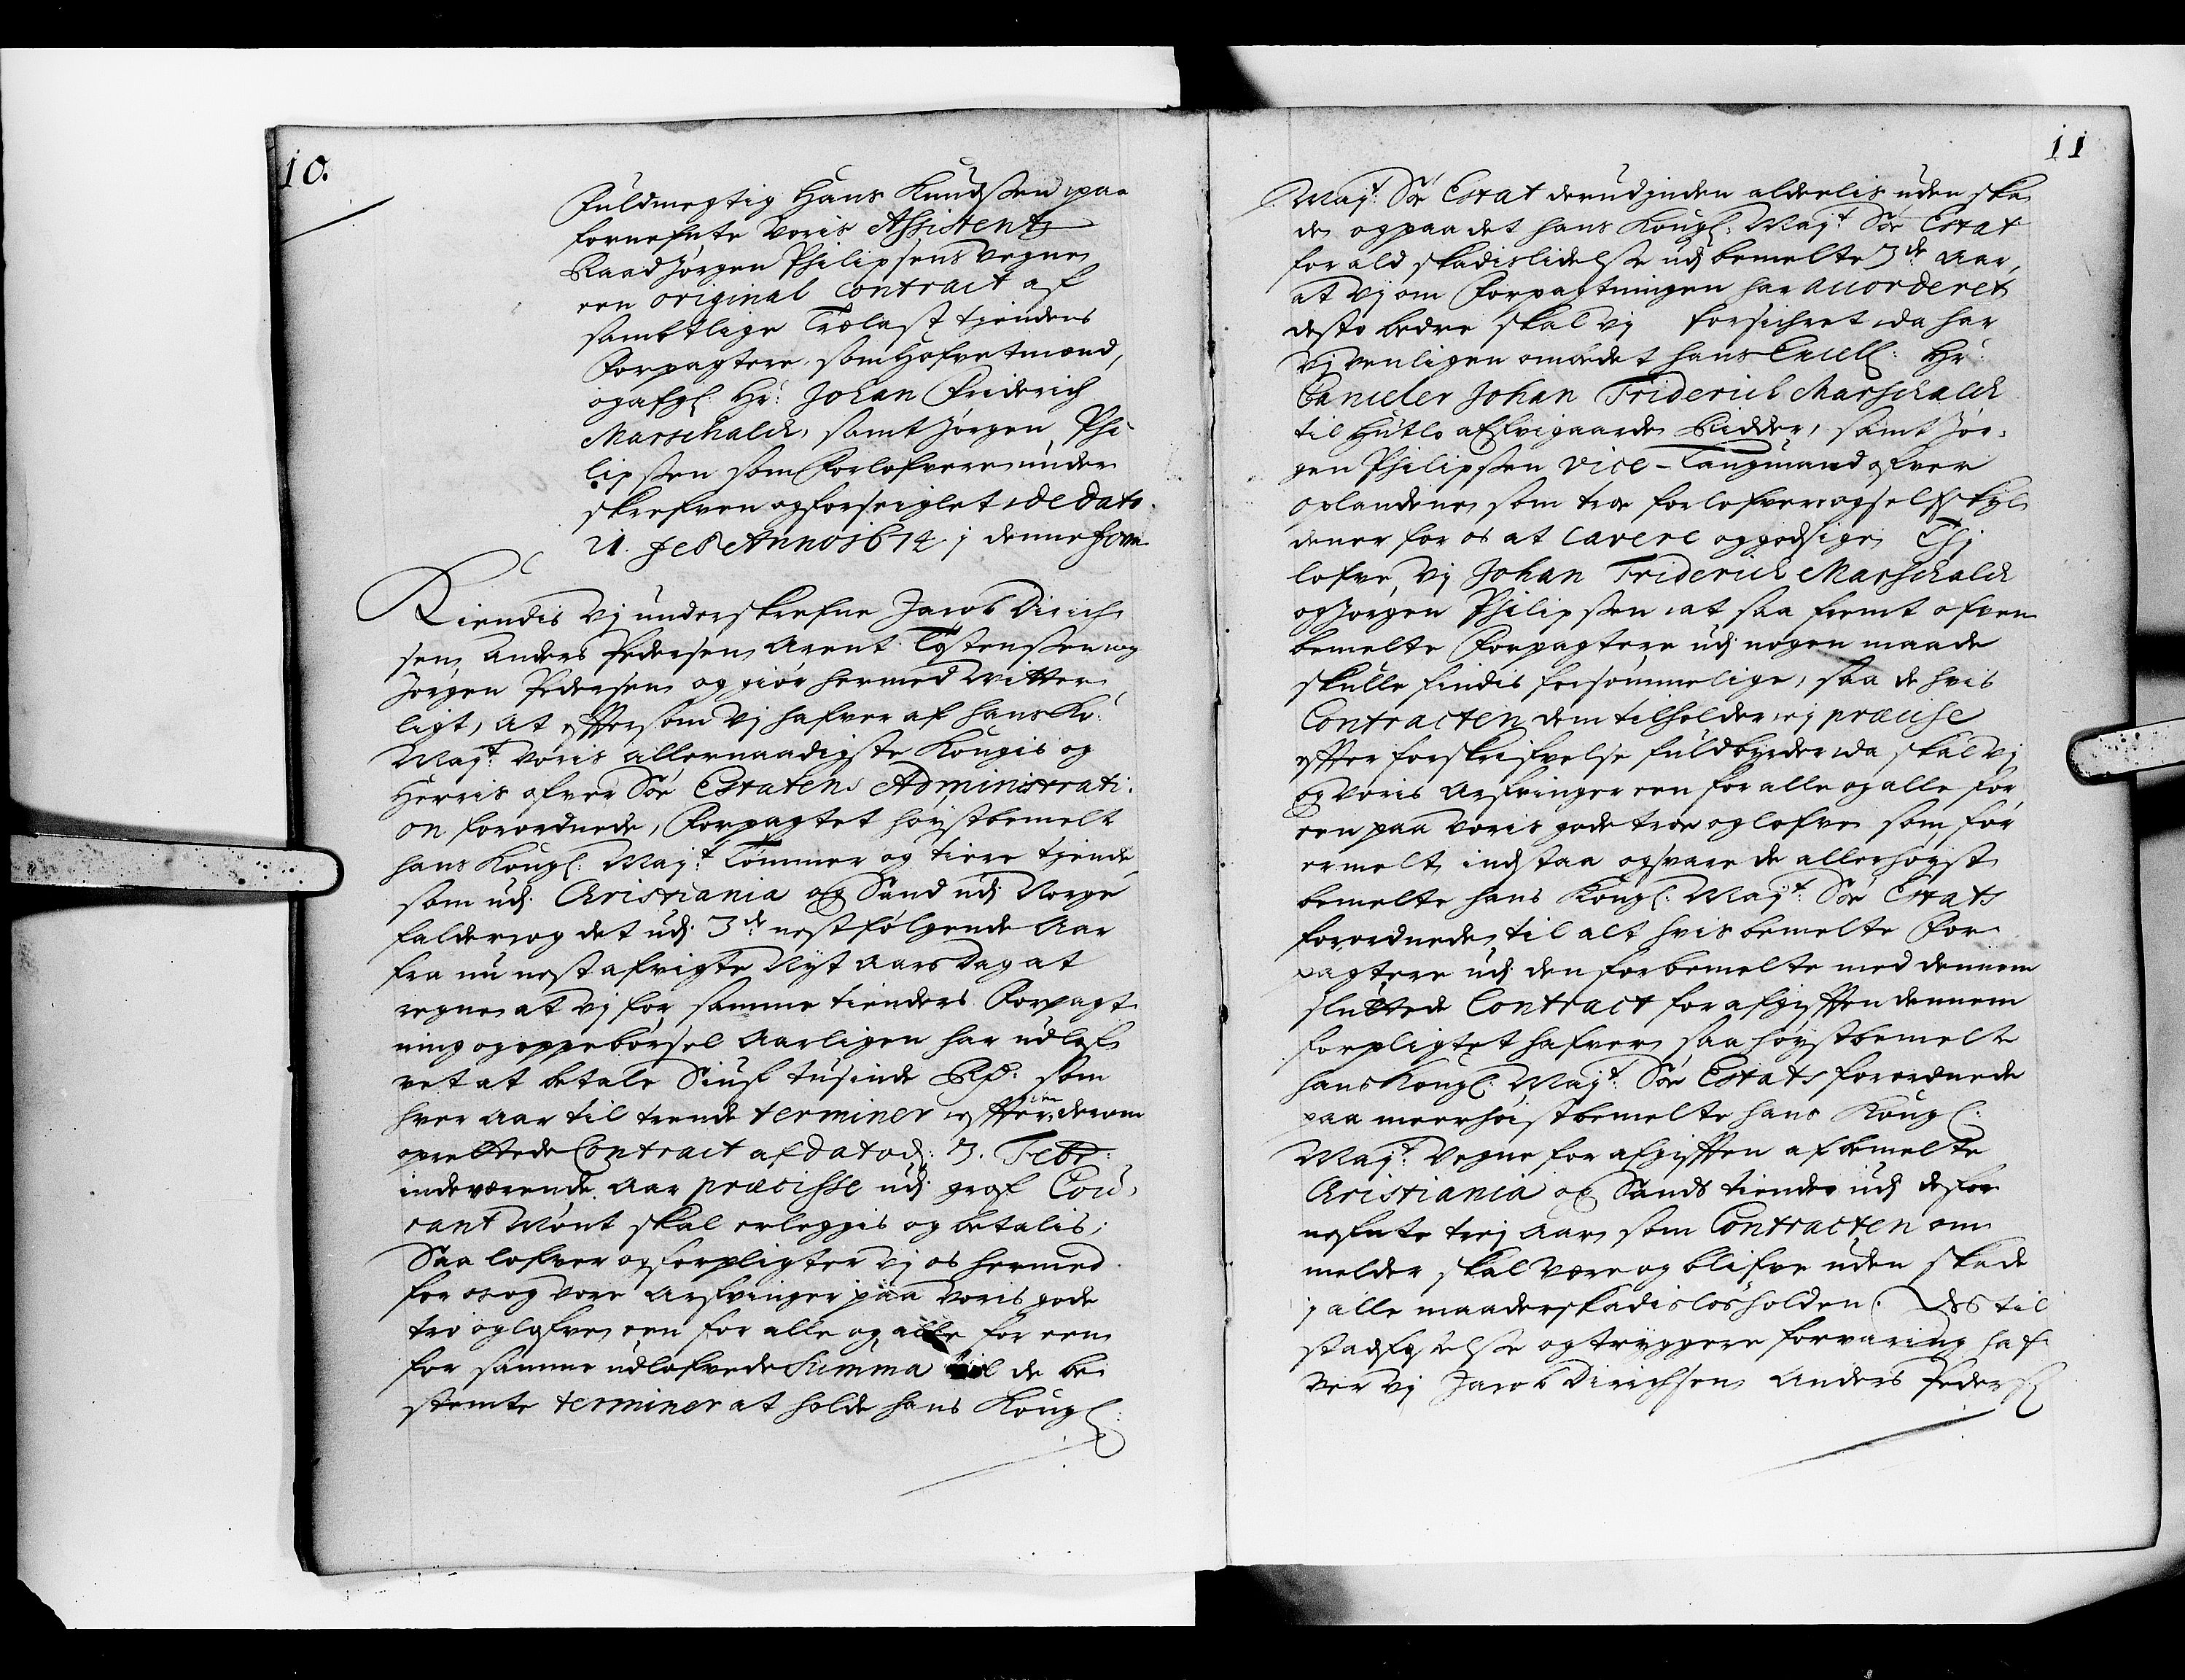 10.
Fuldmegtig Hans Knudssen paa
fornefnte voris Assistentz
Raad Jørgen Philipsens vegne
een original Contract af
samktlige Trælast tienders
Forpagtere, som Hofvetmænd,
og afgl. Hr: Johan Friderich
Marschalck, samt Jørgen Phi
lipssen som Forlofvere under
skrefven og forseiglet, de dato
21. Feb. Anno 1674 i denne form
Kiendis vj underskrefne Jacob Dirich
sen, Anders Pedersen, Arent Tostenssen og
Jørgen Pedersen, og giør hermed vitter
ligt, at effter som vj hafver af hans Ko:
Majt voris allernaadigste Kongis og
Herris ofver Søe Estatens Administrati:
on forordnede, Forpagtet høystbemelt
hans Kongl: Majt Tømmer og tiere tiende
som udj Christiania og Sand udj Norge
falder, og det udj 3de nest følgende Aar
fra nu nest afvigte Nyt Aars Dag at
regne, at vj for samme tienders Forpagt
ning og oppebørsel Aarligen har udlof
vet at betale Siuf tusinde Rd: som
hver Aar til trende terminer effter en derom
oprettede Contract af dato d: 3. Febr:
indeværende Aar præcisse udj grof Cou
rant Mønt skal erleggis og betalis;
Saa lofver og forpligter vj os hermed
for os og vore Arfvinger paa voris gode
tro og lofve, een for alle og alle for een
for samme udlofvede Summa til de be
stemte terminer at holde hans Kongl:
11
Majt Søe Estat derudjnden alderlis uden ska
de, og paa det hans Kongl: Majt Søe Estat
for ald skadislidelsse udj bemelte 3de Aar,
at vj om Forpagtningen har accorderet
desto bedre skal vj forsichret, da har
vj venligen ombedet hans Excell: Hr:
Canceler Johan Friderich Marschalck
til Hutlo Ridder, samt Jør,
gen Philipssen Vice-Laugmand ofver
Oplandene, som troe forlofvere og self skyl
dener for os at cavere og godsige, Thj
lofve vj Johan Friderich Marschalck
og Jørgen Philipssen, at saa fremt ofven
bemelte Forpagtere udj nogen maade
skulle findis forsømmelige, saa de hvis
Contracten dem tilholder, ej præcise
effter forskrifvelse fuldbyrder, da skal vj
og voris Arfvinger een for alle og alle for
een paa voris gode troe og lofve, som for
ermelt, indstaa og svare de allerhøyst
bemelte hans Kongl: Majt: Søe Estats
forordnede, til alt hvis bemelte For
pagtere udj den forbemelte med dennem
sluttede Contract for afgifften dennem
forpligtet hafver, saa høystbemelte
hans Kongl: Majt: Søe Estats forordnede
paa meerhøistbemelte hans Kongl:
Majt: vegne for afgifften af bemelte
Christiania og Sands tiender udj de for
nefnte trej Aar, som Contracten om
melder, skal være og blifve uden skade
j alle maader skadisløs holden. Des til
stadfestelsse og tryggere forvaring haf
ver vj Jacob Dirichsen, Anders Peders: